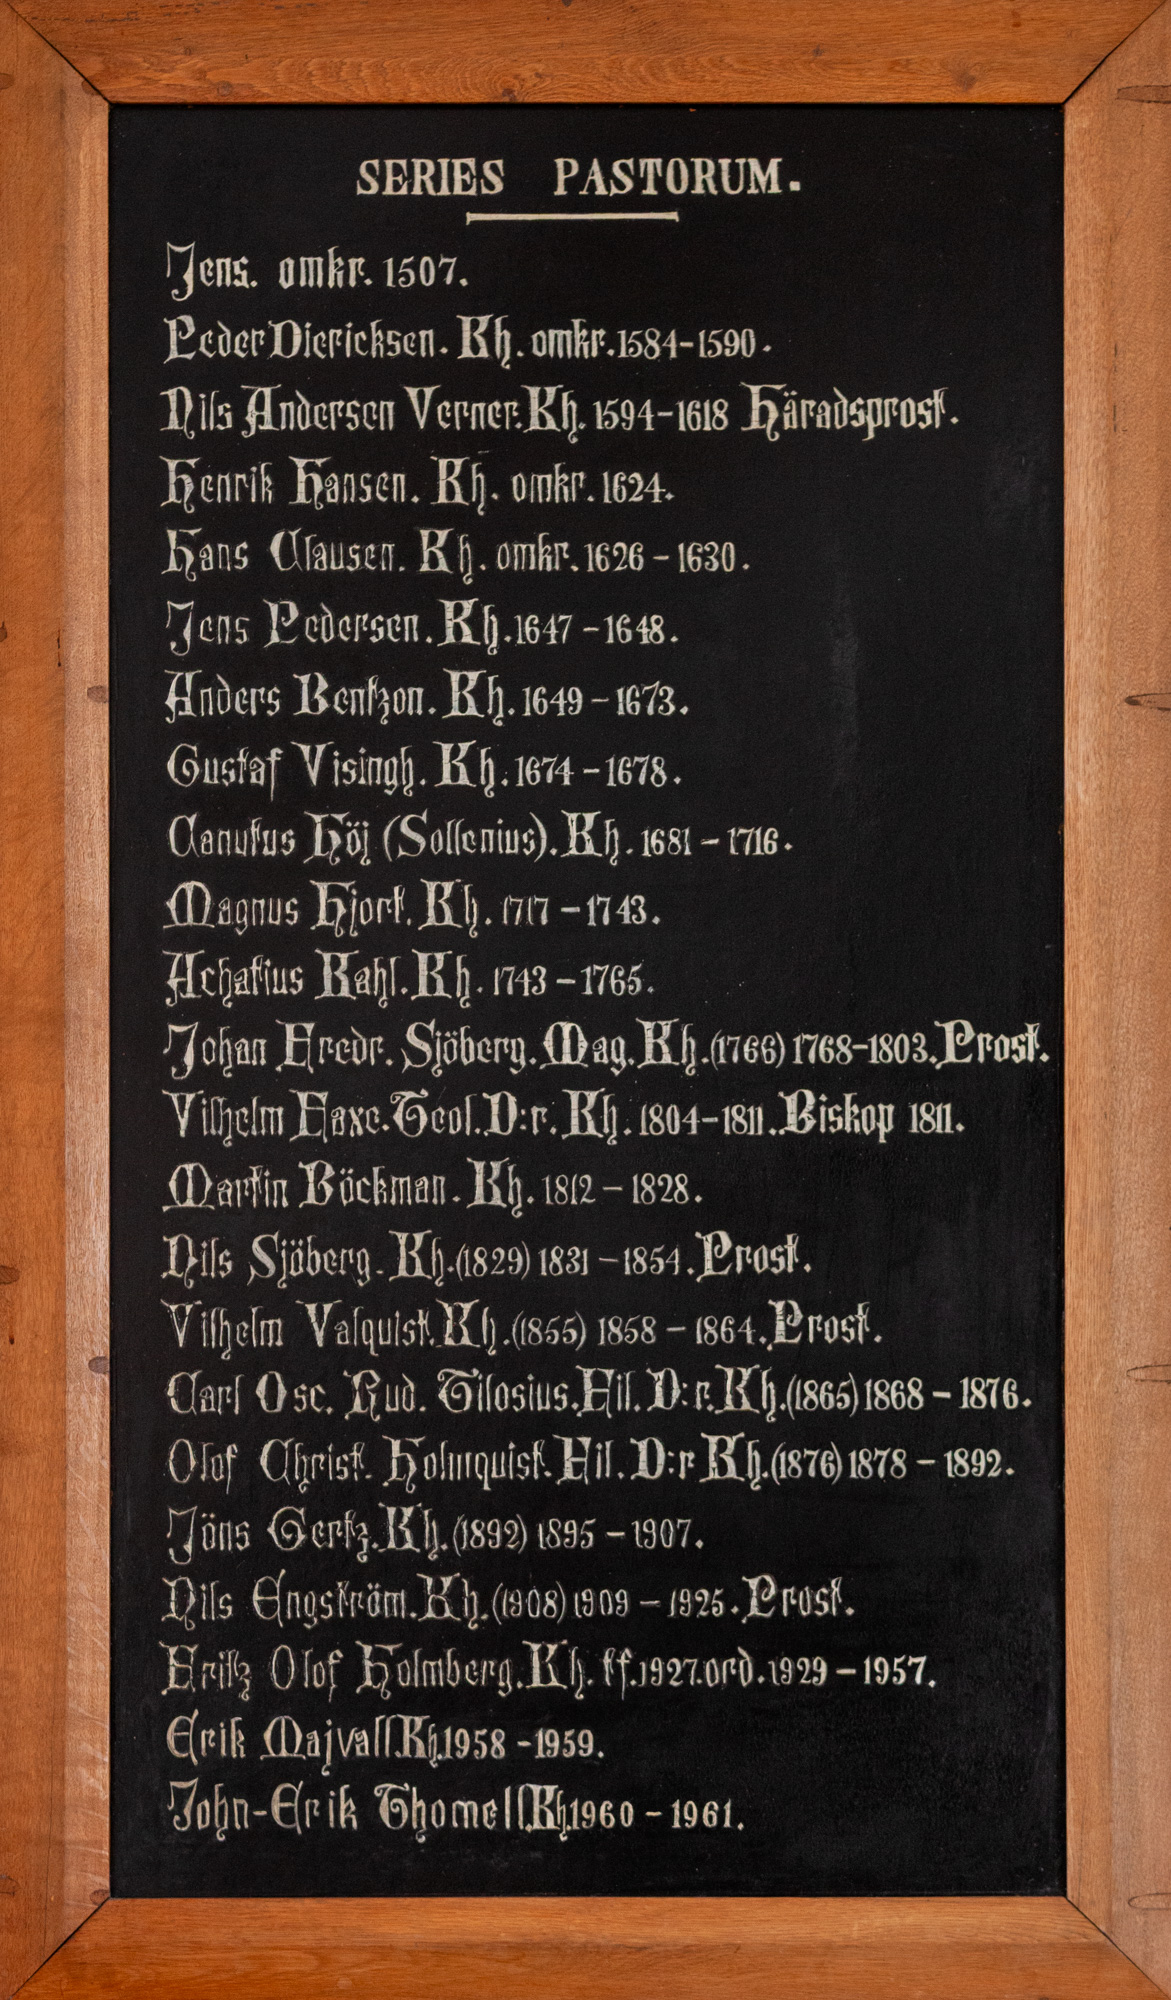 SERIES PASTORUM.
Jens. omkr. 1507.
Peder Diericksen. Kh. omkr. 1584-1590.
Nils Andersen Verner. Kh. 1594-1618 Häradsprost.
Henrik Hansen. Kh. omkr. 1624.
Hans Clausen. Kh. omkr. 1626 - 1630.
Jens Pedersen. Kh. 1647 - 1648.
Anders Bentzon. Kh. 1649 - 1673.
Gustaf Visingh. Kh. 1674 - 1678.
Canutus Höj (Sollenius). Kh. 1681 - 1716.
Magnus Hjort. Kh. 1717 - 1743.
Achatius Kahl. Kh. 1743 - 1765.
Johan Fredr. Sjöberg. Mag. Kh. (1766) 1768-1803. Prost.
Vilhelm Faxe. Teol. D:r. Kh. 1804-1811. Biskop 1811.
Martin Böckman. Kh. 1812 - 1828.
Nils Sjöberg. Kh. (1829) 1831 - 1854. Prost.
Vilhelm Valquist. Kh. (1855) 1858 - 1864. Prost.
Carl Osc. Rud. Tilosius. Fil. D:r. Kh. (1865) 1868 - 1876.
Olof Christ. Holmquist. Fil. D:r Kh. (1876) 1878 - 1892.
Jöns Gertz. Kh. (1892) 1895 - 1907.
Nils Engström. Kh. (1908) 1909 - 1925. Prost.
Fritz Olof Holmberg. Kh. tf. 1927. ord. 1929 - 1957.
Erik Majvall. Kh. 1958 - 1959.
John-Erik Thomell. Kh. 1960 - 1961.